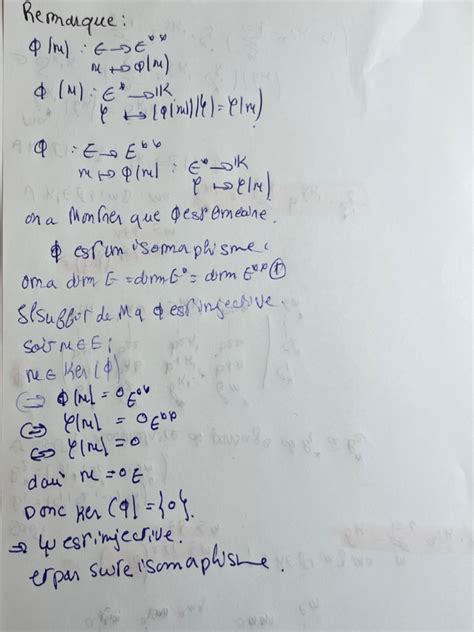 Remarque:
Φ(x) : E → E**
x ↦ Φ(x)
Φ(x) : E* → K
φ ↦ (Φ(x))(φ) = φ(x)
Φ : E → E**
x ↦ Φ(x) : E* → K
φ ↦ φ(x)
on a Montrer que Φ est linéaire.
Φ est un isomorphisme.
on a dim E = dim E* = dim E** ①
Il suffit de Mq Φ est injective.
soit x ∈ E:
x ∈ Ker(Φ)
⇔ Φ(x) = 0E**
⇔ φ(x) = 0E**
⇔ φ(x) = 0
d'où x = 0E
Donc Ker(Φ) = {0}.
⇒ φ est injective.
et par suite isomorphisme.